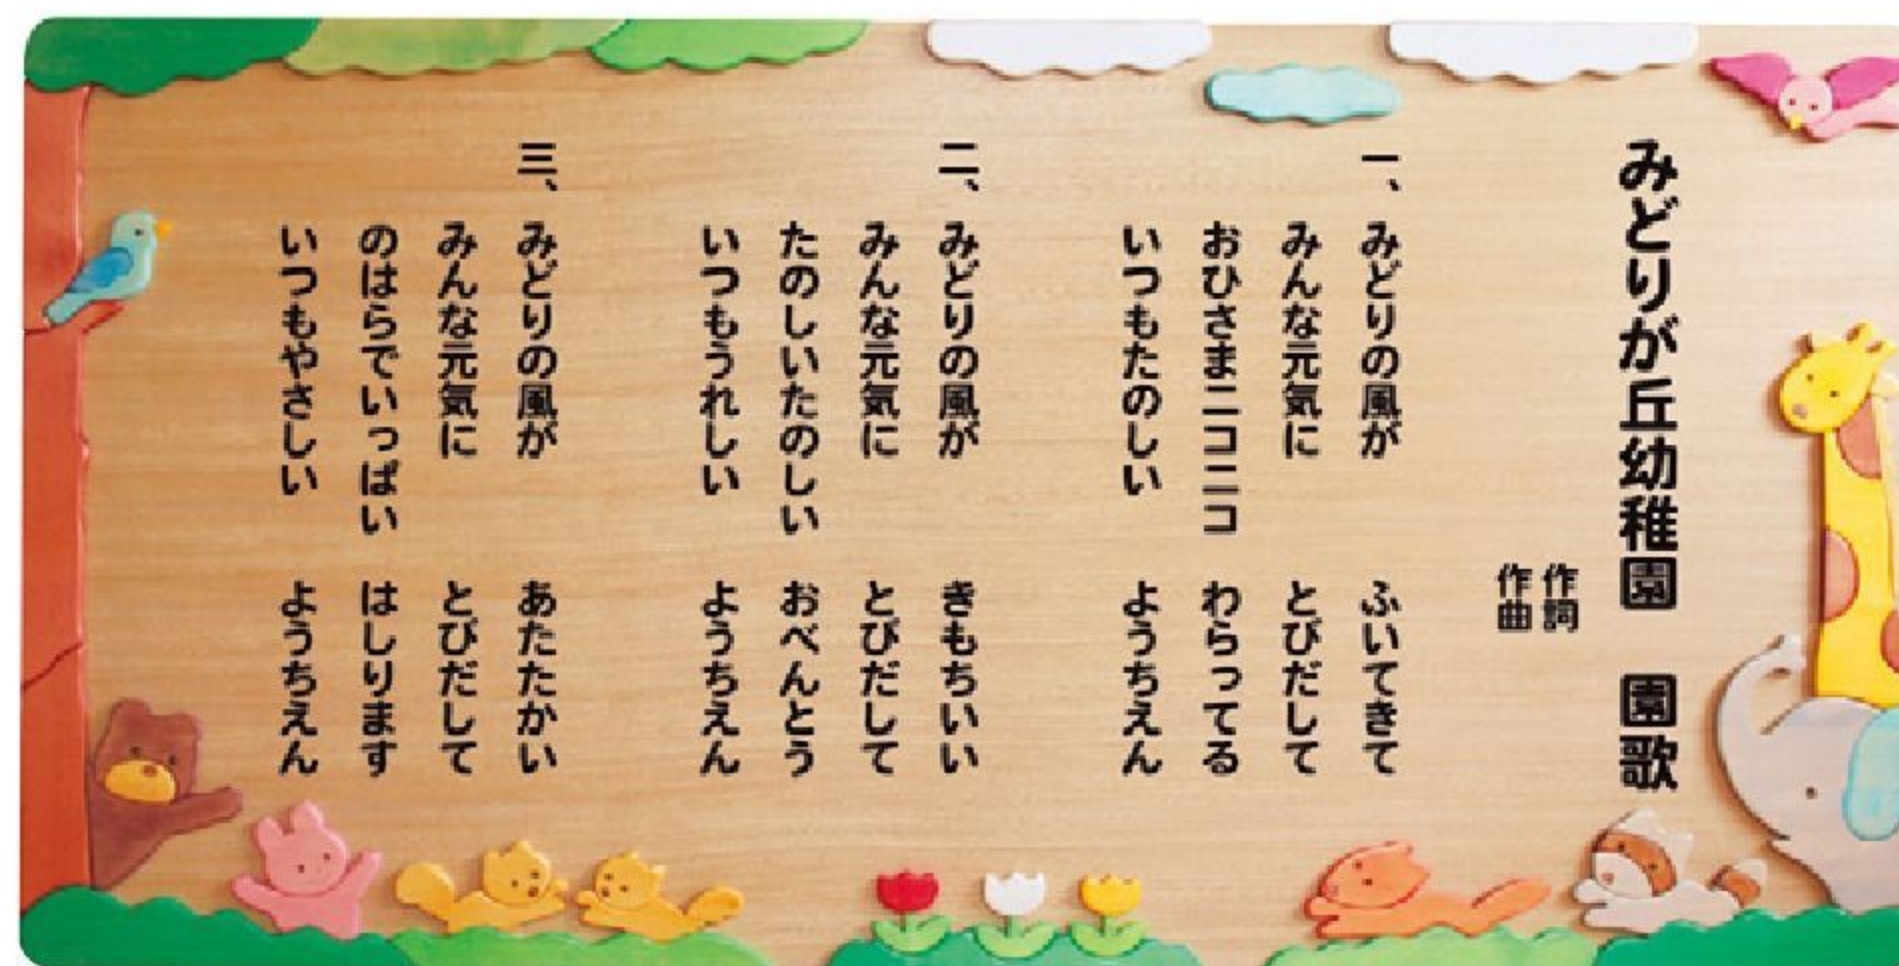 みどりが丘幼稚園　園歌
作詞
作曲
一、みどりの風が　ふいてきて
みんな元気に　とびだして
おひさまニコニコ　わらってる
いつもたのしい　ようちえん
二、みどりの風が　きもちいい
みんな元気に　とびだして
たのしいたのしい　おべんとう
いつもうれしい　ようちえん
三、みどりの風が　あたたかい
みんな元気に　とびだして
のはらでいっぱい　はしります
いつもやさしい　ようちえん